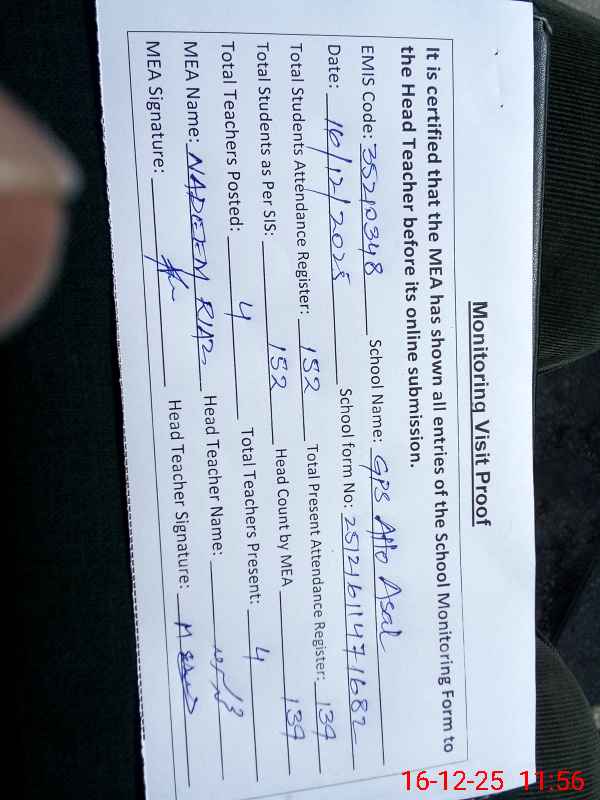 Monitoring Visit Proof
It is certified that the MEA has shown all entries of the School Monitoring Form to
the Head Teacher before its online submission.
EMIS Code: 35210348 School Name: GPS Atto Asal
Date: 16/12/2025 School form No: 25121611471682
Total Students Attendance Register: 152 Total Present Attendance Register: 139
Total Students as Per SIS: 152 Head Count by MEA 139
Total Teachers Posted: 4 Total Teachers Present: 4
MEA Name: NADEEM RIAZ Head Teacher Name:
MEA Signature: Head Teacher Signature:
16-12-25 11:56